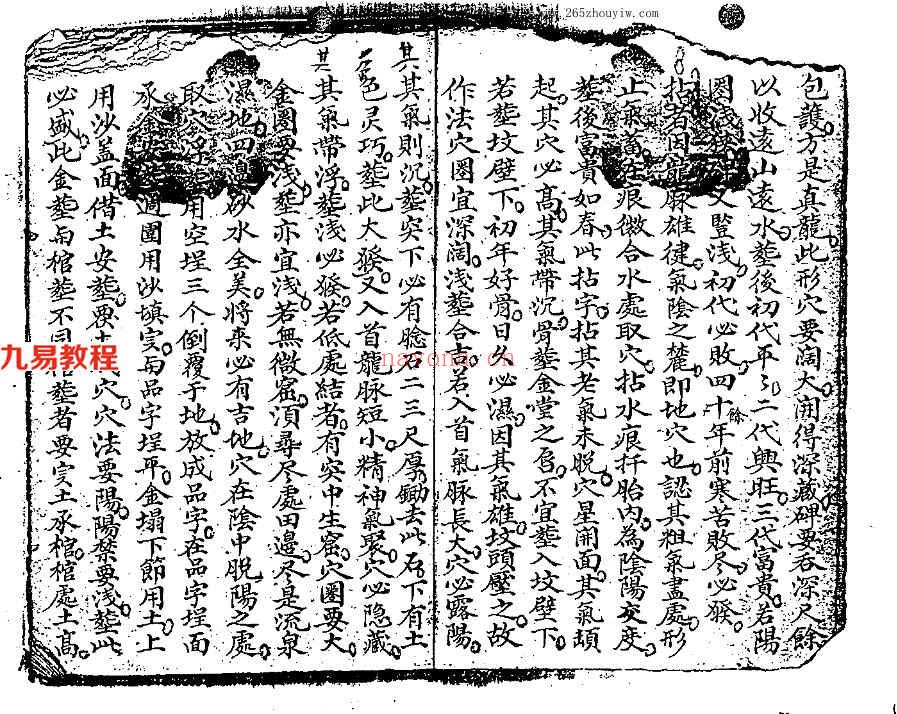 www.265zhouyiw.com
包護方是真龍此形穴要闊大開得深藏碑要吞深尺餘
以收遠山遠水塟後初代平〻二代興旺三代富貴若陽
圈淺 又豎淺初代必敗四十餘年前寒苦敗尽必發
拈者因龍脉雄健氣陰之麓即地穴也認其粗氣盡處形
止氣蓄在痕微合水處取穴拈水痕扦胎内為陰陽交度
塟後富貴如春此拈字拈其老氣未脱穴星開面其氣頏
起其穴必高其氣帶沉骨塟金堂之后不宜塟入坟壁下
若塟坟壁下初年好骨日久必濕因其氣雄坟頭壓之故
作法穴圈宜深闊淺塟合吉若入首氣脉長大穴必露陽
其其氣則沉塟突下必有脸石二三尺厚鋤去此石下有土
五色灵巧塟此大發又入首龍脉短小精神氣聚穴必隐藏
其其氣帶浮塟淺必發若低處結者有突中生窟穴圈要大
金圈要浅塟亦宜浅若無微窟須尋尽處田邊尽是流泉
濕地四邊砂水全美將來必有吉地穴在陰中脱陽之處
取穴浮塟用空埕三个倒覆于地放成品字在品字埕面
承金安塟週圍用沙填实与品字埕平金塌下節用土上
用沙盖面借土安塟 穴穴法要陽陽禁要浅塟此
必盛此金塟与棺塟不同 塟者要实土承棺棺處土高
九易教程
nayona.cn